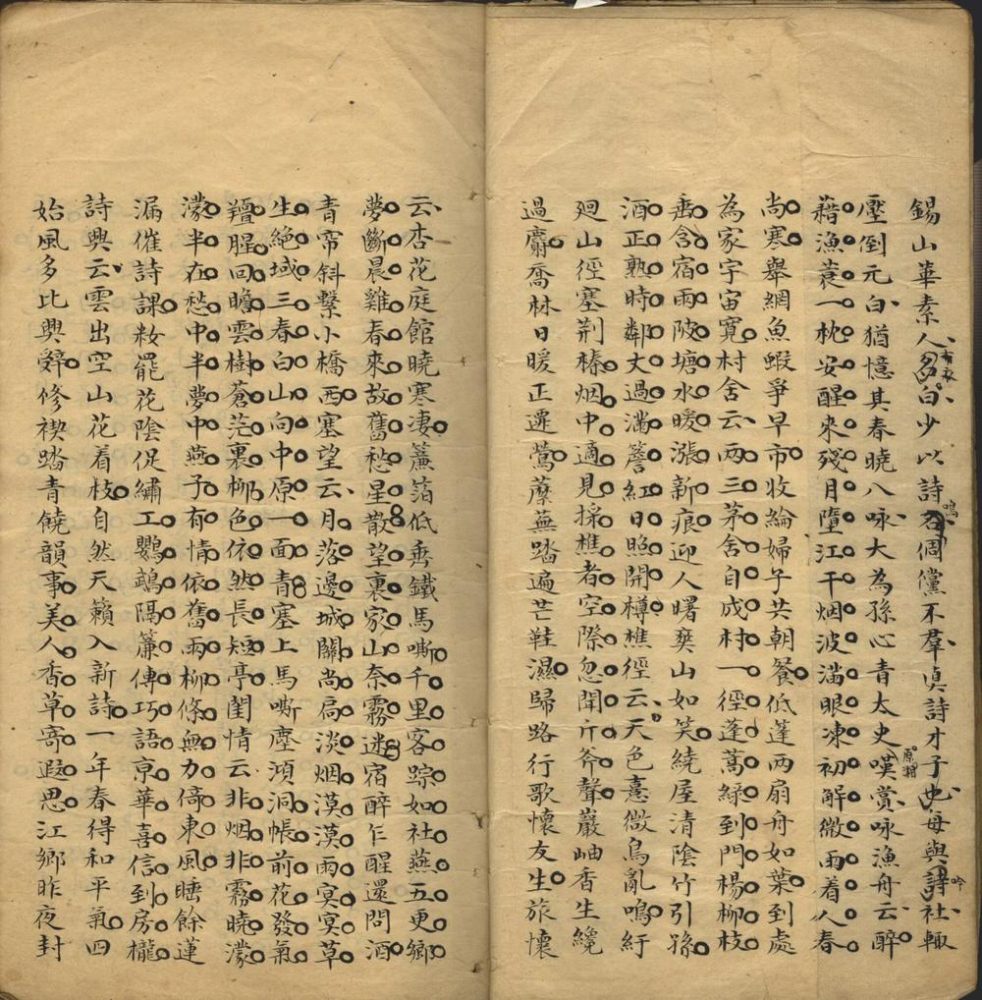 錫山華素人多白少以詩名倜儻不羣真詩才子也母與詩社輒
壓倒元白猶憶其春曉八咏大為孫心青太史嘆賞咏漁舟云醉
藉漁蓑一枕安醒來殘月墮江干烟波滿眼凍初解微雨着人春
尚寒舉網魚蝦爭早市收綸婦子共朝餐低蓬兩扇舟如葉到處
為家宇宙寬村舍云兩三茅舍自成村一徑蓬蒿綠到門楊柳枝
垂含宿雨陂塘水暖漲新痕迎人曙爽山如笑繞屋清陰竹引孫
酒正熟時鄰丈過滿簷紅日照開樽樵徑云天色熹微鳥亂鳴紆
廻山徑塞荆榛烟中適見採樵者空際忽聞斤斧聲巖岫香生纔
過麝喬林日暖正遷鶯蘼蕪踏遍芒鞋濕歸路行歌懷友生旅懷
云杏花庭館曉寒凄簾箔低垂鐵馬嘶千里客踪如社燕五更鄉
夢斷晨雞春來故舊愁星散望裏家山奈霧迷宿醉乍醒還問酒
青帘斜繫小橋西塞望云月落邊城關尚扃淡烟漠漠雨冥冥草
生絕域三春白山向中原一面青塞上馬嘶塵澒洞帳前花發氣
羶腥回瞻雲樹蒼茫裏柳色依然長短亭閨情云非烟非霧曉濛
濛半在愁中半夢中燕子有情依舊雨柳條無力倚東風睡餘蓮
漏催詩課粧罷花陰促繡工鸚鵡隔簾傳巧語京華喜信到房櫳
詩興云雲出空山花着枝自然天籟入新詩一年春得和平氣四
始風多比興辭修禊踏青饒韻事美人香草寄遐思江鄉昨夜封